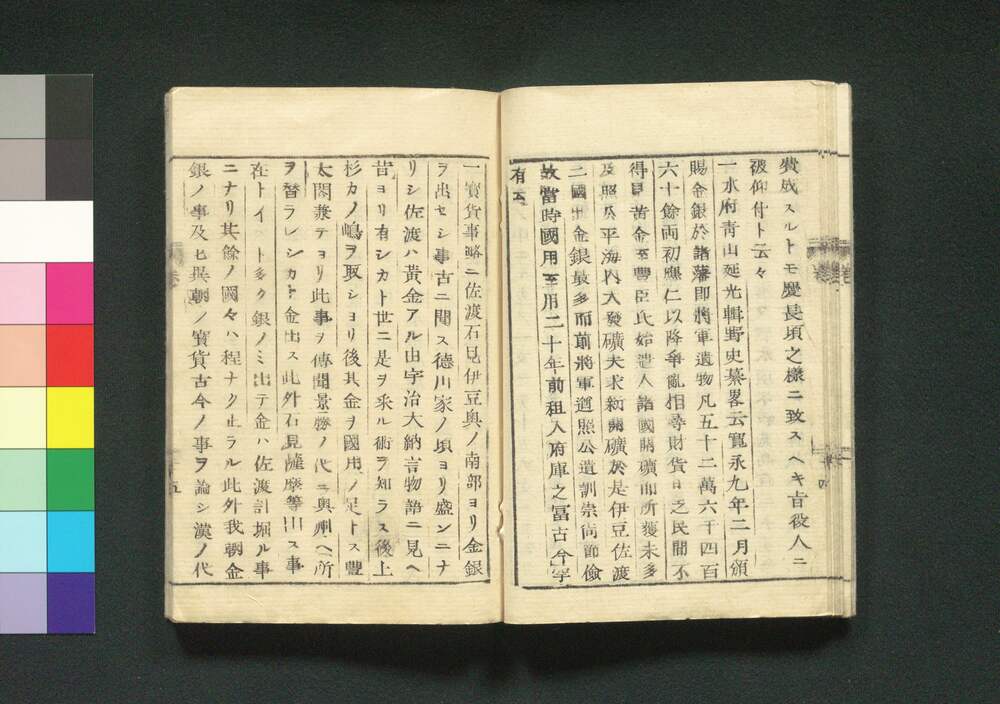 費成スルトモ慶長頃之様ニ致スヘキ旨役人ニ
被仰付ト云々
一水府青山延光輯野史纂畧云寛永九年二月頒
賜金銀於諸藩即將軍遺物凡五十二萬六千四百
六十餘両初應仁以降爭亂相尋財貨日乏民間不
得見黃金至豐臣氏始遣人諸國開礦而所獲未多
及照公平海内大發礦夫求新開礦於是伊豆佐渡
二國出金銀最多而前將軍遵照公遺訓崇尚節儉
故當時國用至用二十年前租入府庫之富古今罕
有云
一寳貨事略ニ佐渡石見伊豆奥ノ南部ヨリ金銀
ヲ出セシ事古ニ聞ス德川家ノ頃ヨリ盛ンニナ
リシ佐渡ハ黃金アル由宇治大納言物語ニ見ヘ
昔ヨリ有シカト世ニ是ヲ釆ル術ヲ知ラス後上
杉カノ嶋ヲ取シヨリ後其金ヲ國用ノ足トス豐
太閤兼テヨリ此事ヲ傳聞景勝ノ代ニ奥州ヘ所
ヲ替ラレシカト金出ス此外石見薩摩等出ス事
在トイヘト多ク銀ノミ出テ金ハ佐渡計堀ル事
ニナリ其餘ノ國々ハ程ナク止ラル此外我朝金
銀ノ事及ヒ異朝ノ寳貨古今ノ事ヲ論シ漢ノ代